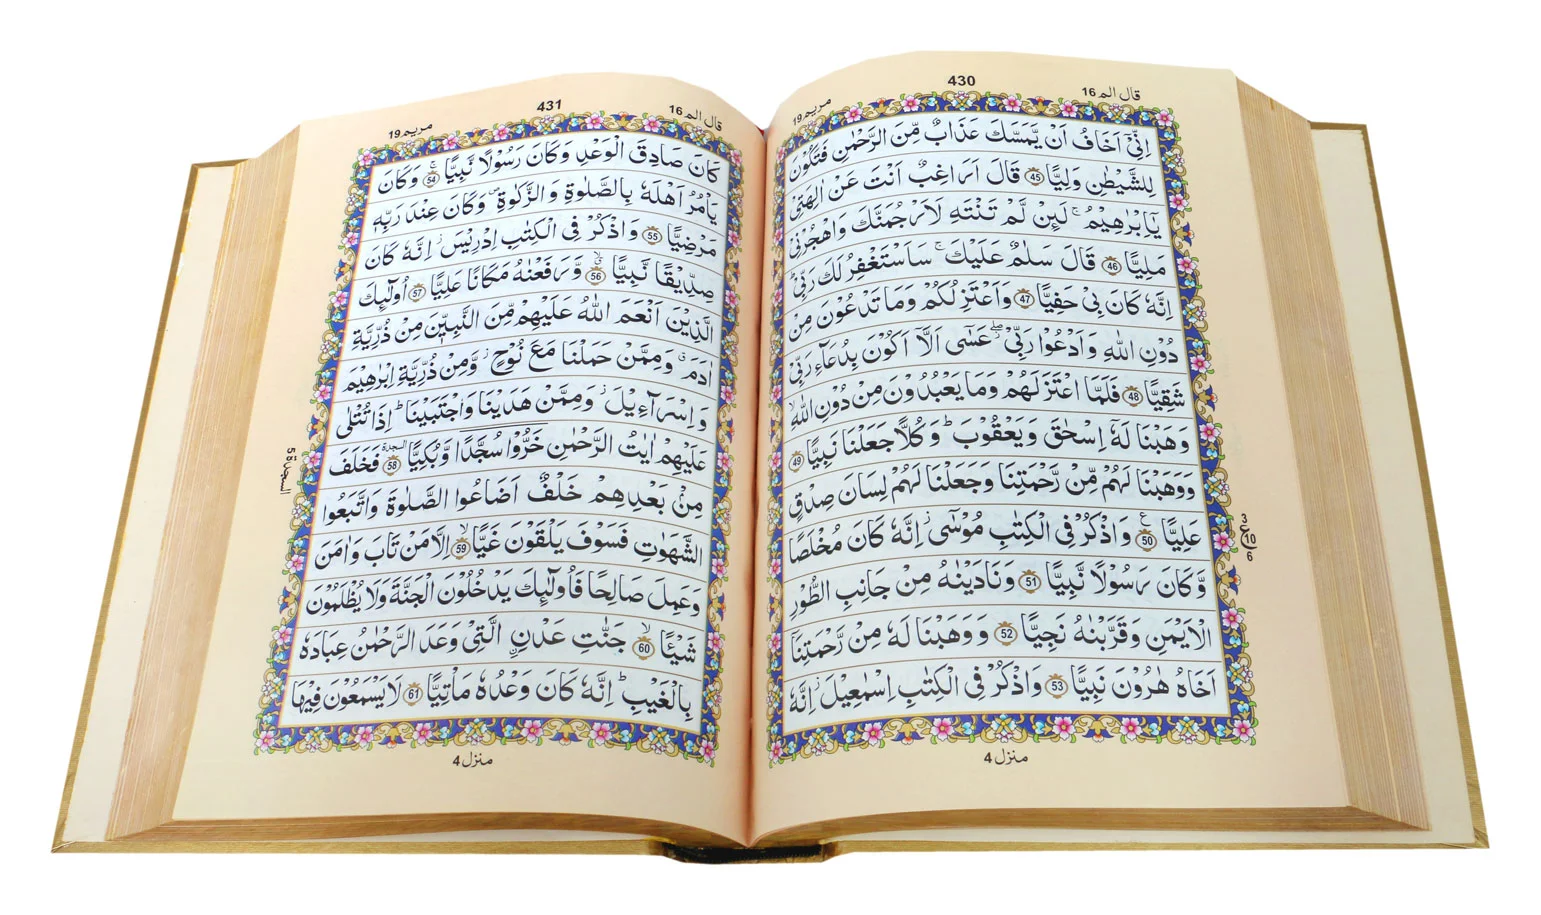 قال الم 16
430
مريم 19
اِنِّىْٓ اَخَافُ اَنْ يَّمَسَّكَ عَذَابٌ مِّنَ الرَّحْمٰنِ فَتَكُوْنَ
لِلشَّيْطٰنِ وَلِيًّا 45 قَالَ اَرَاغِبٌ اَنْتَ عَنْ اٰلِهَتِىْ
يٰٓاِبْرٰهِيْمُ ۚ لَئِنْ لَّمْ تَنْتَهِ لَاَرْجُمَنَّكَ وَاهْجُرْنِىْ
مَلِيًّا 46 قَالَ سَلٰمٌ عَلَيْكَ ۚ سَاَسْتَغْفِرُ لَكَ رَبِّىْ ؕ
اِنَّهٗ كَانَ بِىْ حَفِيًّا 47 وَاَعْتَزِلُكُمْ وَمَا تَدْعُوْنَ مِنْ
دُوْنِ اللّٰهِ وَاَدْعُوْا رَبِّىْ ۖ عَسٰٓى اَلَّاۤ اَكُوْنَ بِدُعَآءِ رَبِّىْ
شَقِيًّا 48 فَلَمَّا اعْتَزَلَهُمْ وَمَا يَعْبُدُوْنَ مِنْ دُوْنِ اللّٰهِ ۙ
وَهَبْنَا لَهٗٓ اِسْحٰقَ وَيَعْقُوْبَ ؕ وَكُلًّا جَعَلْنَا نَبِيًّا 49
وَوَهَبْنَا لَهُمْ مِّنْ رَّحْمَتِنَا وَجَعَلْنَا لَهُمْ لِسَانَ صِدْقٍ
عَلِيًّا 50 وَاذْكُرْ فِى الْكِتٰبِ مُوْسٰٓى ز اِنَّهٗ كَانَ مُخْلَصًا
وَّكَانَ رَسُوْلًا نَّبِيًّا 51 وَنَادَيْنٰهُ مِنْ جَانِبِ الطُّوْرِ
الْاَيْمَنِ وَقَرَّبْنٰهُ نَجِيًّا 52 وَوَهَبْنَا لَهٗ مِنْ رَّحْمَتِنَآ
اَخَاهُ هٰرُوْنَ نَبِيًّا 53 وَاذْكُرْ فِى الْكِتٰبِ اِسْمٰعِيْلَ ز اِنَّهٗ
3
ع
10
6
منزل 4
قال الم 16
431
مريم 19
كَانَ صَادِقَ الْوَعْدِ وَكَانَ رَسُوْلًا نَّبِيًّا ۚ 54 وَكَانَ
يَاْمُرُ اَهْلَهٗ بِالصَّلٰوةِ وَالزَّكٰوةِ ص وَكَانَ عِنْدَ رَبِّهٖ
مَرْضِيًّا 55 وَاذْكُرْ فِى الْكِتٰبِ اِدْرِيْسَ ز اِنَّهٗ كَانَ
صِدِّيْقًا نَّبِيًّا 56 وَّرَفَعْنٰهُ مَكَانًا عَلِيًّا 57 اُولٰٓئِكَ
الَّذِيْنَ اَنْعَمَ اللّٰهُ عَلَيْهِمْ مِّنَ النَّبِيّٖنَ مِنْ ذُرِّيَّةِ
اٰدَمَ ق وَمِمَّنْ حَمَلْنَا مَعَ نُوْحٍ ز وَّمِنْ ذُرِّيَّةِ اِبْرٰهِيْمَ
وَاِسْرَآءِيْلَ ز وَمِمَّنْ هَدَيْنَا وَاجْتَبَيْنَا ؕ اِذَا تُتْلٰى
عَلَيْهِمْ اٰيٰتُ الرَّحْمٰنِ خَرُّوْا سُجَّدًا وَّبُكِيًّا السجدة 58 فَخَلَفَ
مِنْۢ بَعْدِهِمْ خَلْفٌ اَضَاعُوا الصَّلٰوةَ وَاتَّبَعُوا
الشَّهَوٰتِ فَسَوْفَ يَلْقَوْنَ غَيًّا ۙ 59 اِلَّا مَنْ تَابَ وَاٰمَنَ
وَعَمِلَ صَالِحًا فَاُولٰٓئِكَ يَدْخُلُوْنَ الْجَنَّةَ وَلَا يُظْلَمُوْنَ
شَيْـًٔا ۙ 60 جَنّٰتِ عَدْنِ ۣ الَّتِىْ وَعَدَ الرَّحْمٰنُ عِبَادَهٗ
بِالْغَيْبِ ؕ اِنَّهٗ كَانَ وَعْدُهٗ مَاْتِيًّا 61 لَا يَسْمَعُوْنَ فِيْهَا
السجدة 5
منزل 4